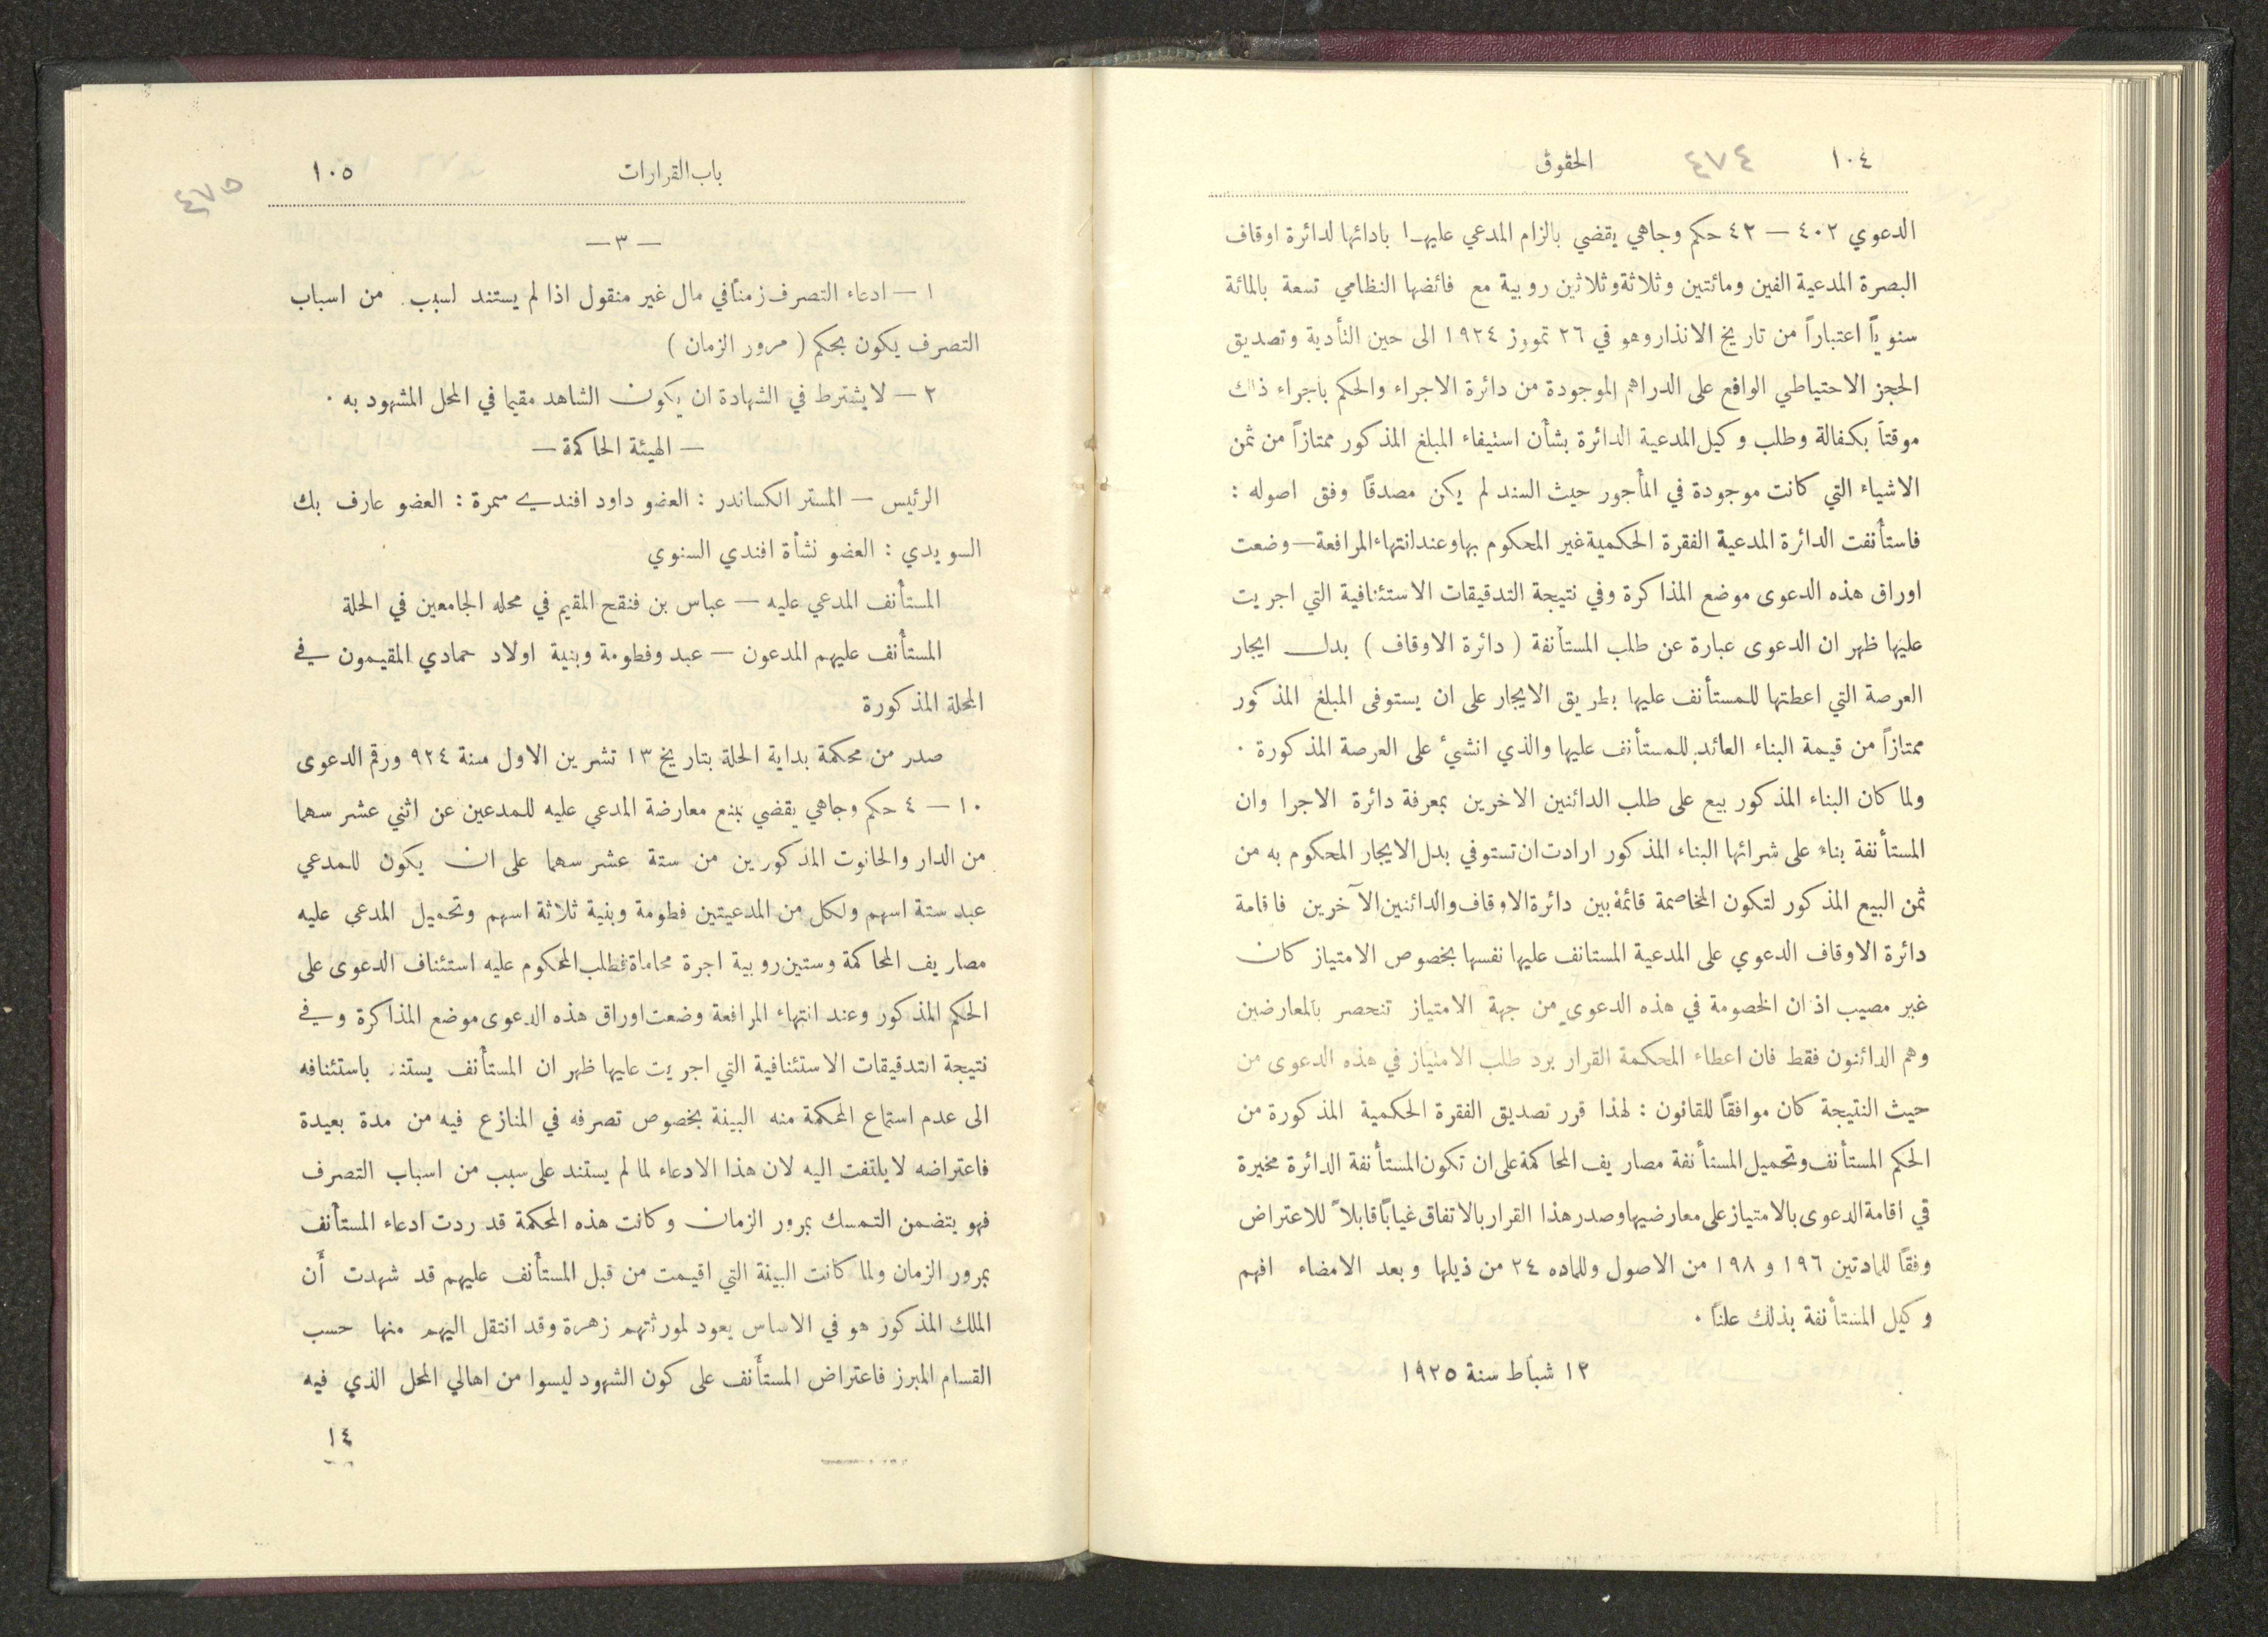 ١٠٤ ٤٧٤ الحقوق
الدعوي ٤٠٢ — ٤٢ حكم وجاهي يقضي بالزام المدعي عليها بادائها لدائرة اوقاف
البصرة المدعية الفين ومائتين وثلاثة وثلاثين روبية مع فائضها النظامي تسعة بالمائة
سنوياً اعتباراً من تاريخ الانذار وهو في ٢٦ تموز ١٩٢٤ الى حين التأدية وتصديق
الحجز الاحتياطي الواقع على الدراهم الموجودة من دائرة الاجراء والحكم باجراء ذلك
موقتاً بكفالة وطلب وكيل المدعية الدائرة بشأن استيفاء المبلغ المذكور ممتازاً من ثمن
الاشياء التي كانت موجودة في المأجور حيث السند لم يكن مصدقاً وفق اصوله :
فاستأنفت الدائرة المدعية الفقرة الحكمية غير المحكوم بها وعند انتهاء المرافعة — وضعت
اوراق هذه الدعوى موضع المذاكرة وفي نتيجة التدقيقات الاستئنافية التي اجريت
عليها ظهر ان الدعوى عبارة عن طلب المستأنفة ( دائرة الاوقاف ) بدل ايجار
العرصة التي اعطتها للمستأنف عليها بطريق الايجار على ان يستوفى المبلغ المذكور
ممتازاً من قيمة البناء العائد للمستأنف عليها والذي انشئ على العرصة المذكورة .
ولما كان البناء المذكور بيع على طلب الدائنين الاخرين بمعرفة دائرة الاجرا وان
المستأنفة بناء على شرائها البناء المذكور ارادت ان تستوفي بدل الايجار المحكوم به من
ثمن البيع المذكور لتكون المخاصمة قائمة بين دائرة الاوقاف والدائنين الآخرين فاقامة
دائرة الاوقاف الدعوي على المدعية المستانف عليها نفسها بخصوص الامتياز كان
غير مصيب اذ ان الخصومة في هذه الدعوي من جهة الامتياز تنحصر بالمعارضين
وهم الدائنون فقط فان اعطاء المحكمة القرار برد طلب الامتياز في هذه الدعوى من
حيث النتيجة كان موافقاً للقانون : لهذا قرر تصديق الفقرة الحكمية المذكورة من
الحكم المستأنف وتحميل المستأنفة مصاريف المحاكمة على ان تكون المستأنفة الدائرة مخيرة
في اقامة الدعوى بالامتياز على معارضيها وصدر هذا القرار بالاتفاق غياباً قابلاً للاعتراض
وفقاً للمادتين ١٩٦ و ١٩٨ من الاصول وللماده ٢٤ من ذيلها وبعد الامضاء افهم
وكيل المستأنفة بذلك علناً .
١٢ شباط سنة ١٩٢٥
باب القرارات ١٠٥
٤٧٥
— ٣ —
١ — ادعاء التصرف زمناً في مال غير منقول اذا لم يستند لسبب من اسباب
التصرف يكون بحكم ( مرور الزمان )
٢ — لا يشترط في الشهادة ان يكون الشاهد مقيما في المحل المشهود به .
— الهيئة الحاكمة —
الرئيس — المستر الكساندر : العضو داود افندي سمرة : العضو عارف بك
السويدي : العضو نشأة افندي السنوي
المستأنف المدعي عليه — عباس بن فنقح المقيم في محله الجامعين في الحلة
المستأنف عليهم المدعون — عبد وفطومة وبنية اولاد حمادي المقيمون في
المحلة المذكورة
صدر من محكمة بداية الحلة بتاريخ ١٣ تشرين الاول سنة ٩٢٤ ورقم الدعوى
١٠ — ٤ حكم وجاهي يقضي بمنع معارضة المدعي عليه للمدعين عن اثني عشر سهما
من الدار والحانوت المذكورين من ستة عشر سهما على ان يكون للمدعي
عبد ستة اسهم ولكل من المدعيتين فطومة وبنية ثلاثة اسهم وتحميل المدعي عليه
مصاريف المحاكمة وستين روبية اجرة محاماة فطلب المحكوم عليه استئناف الدعوى على
الحكم المذكور وعند انتهاء المرافعة وضعت اوراق هذه الدعوى موضع المذاكرة وفي
نتيجة التدقيقات الاستئنافية التي اجريت عليها ظهر ان المستأنف يستند باستئنافه
الى عدم استماع المحكمة منه البينة بخصوص تصرفه في المنازع فيه من مدة بعيدة
فاعتراضه لا يلتفت اليه لان هذا الادعاء لما لم يستند على سبب من اسباب التصرف
فهو يتضمن التمسك بمرور الزمان وكانت هذه المحكمة قد ردت ادعاء المستأنف
بمرور الزمان ولما كانت البينة التي اقيمت من قبل المستأنف عليهم قد شهدت أن
الملك المذكور هو في الاساس يعود لمورثتهم زهرة وقد انتقل اليهم منها حسب
القسام المبرز فاعتراض المستأنف على كون الشهود ليسوا من اهالي المحل الذي فيه
١٤